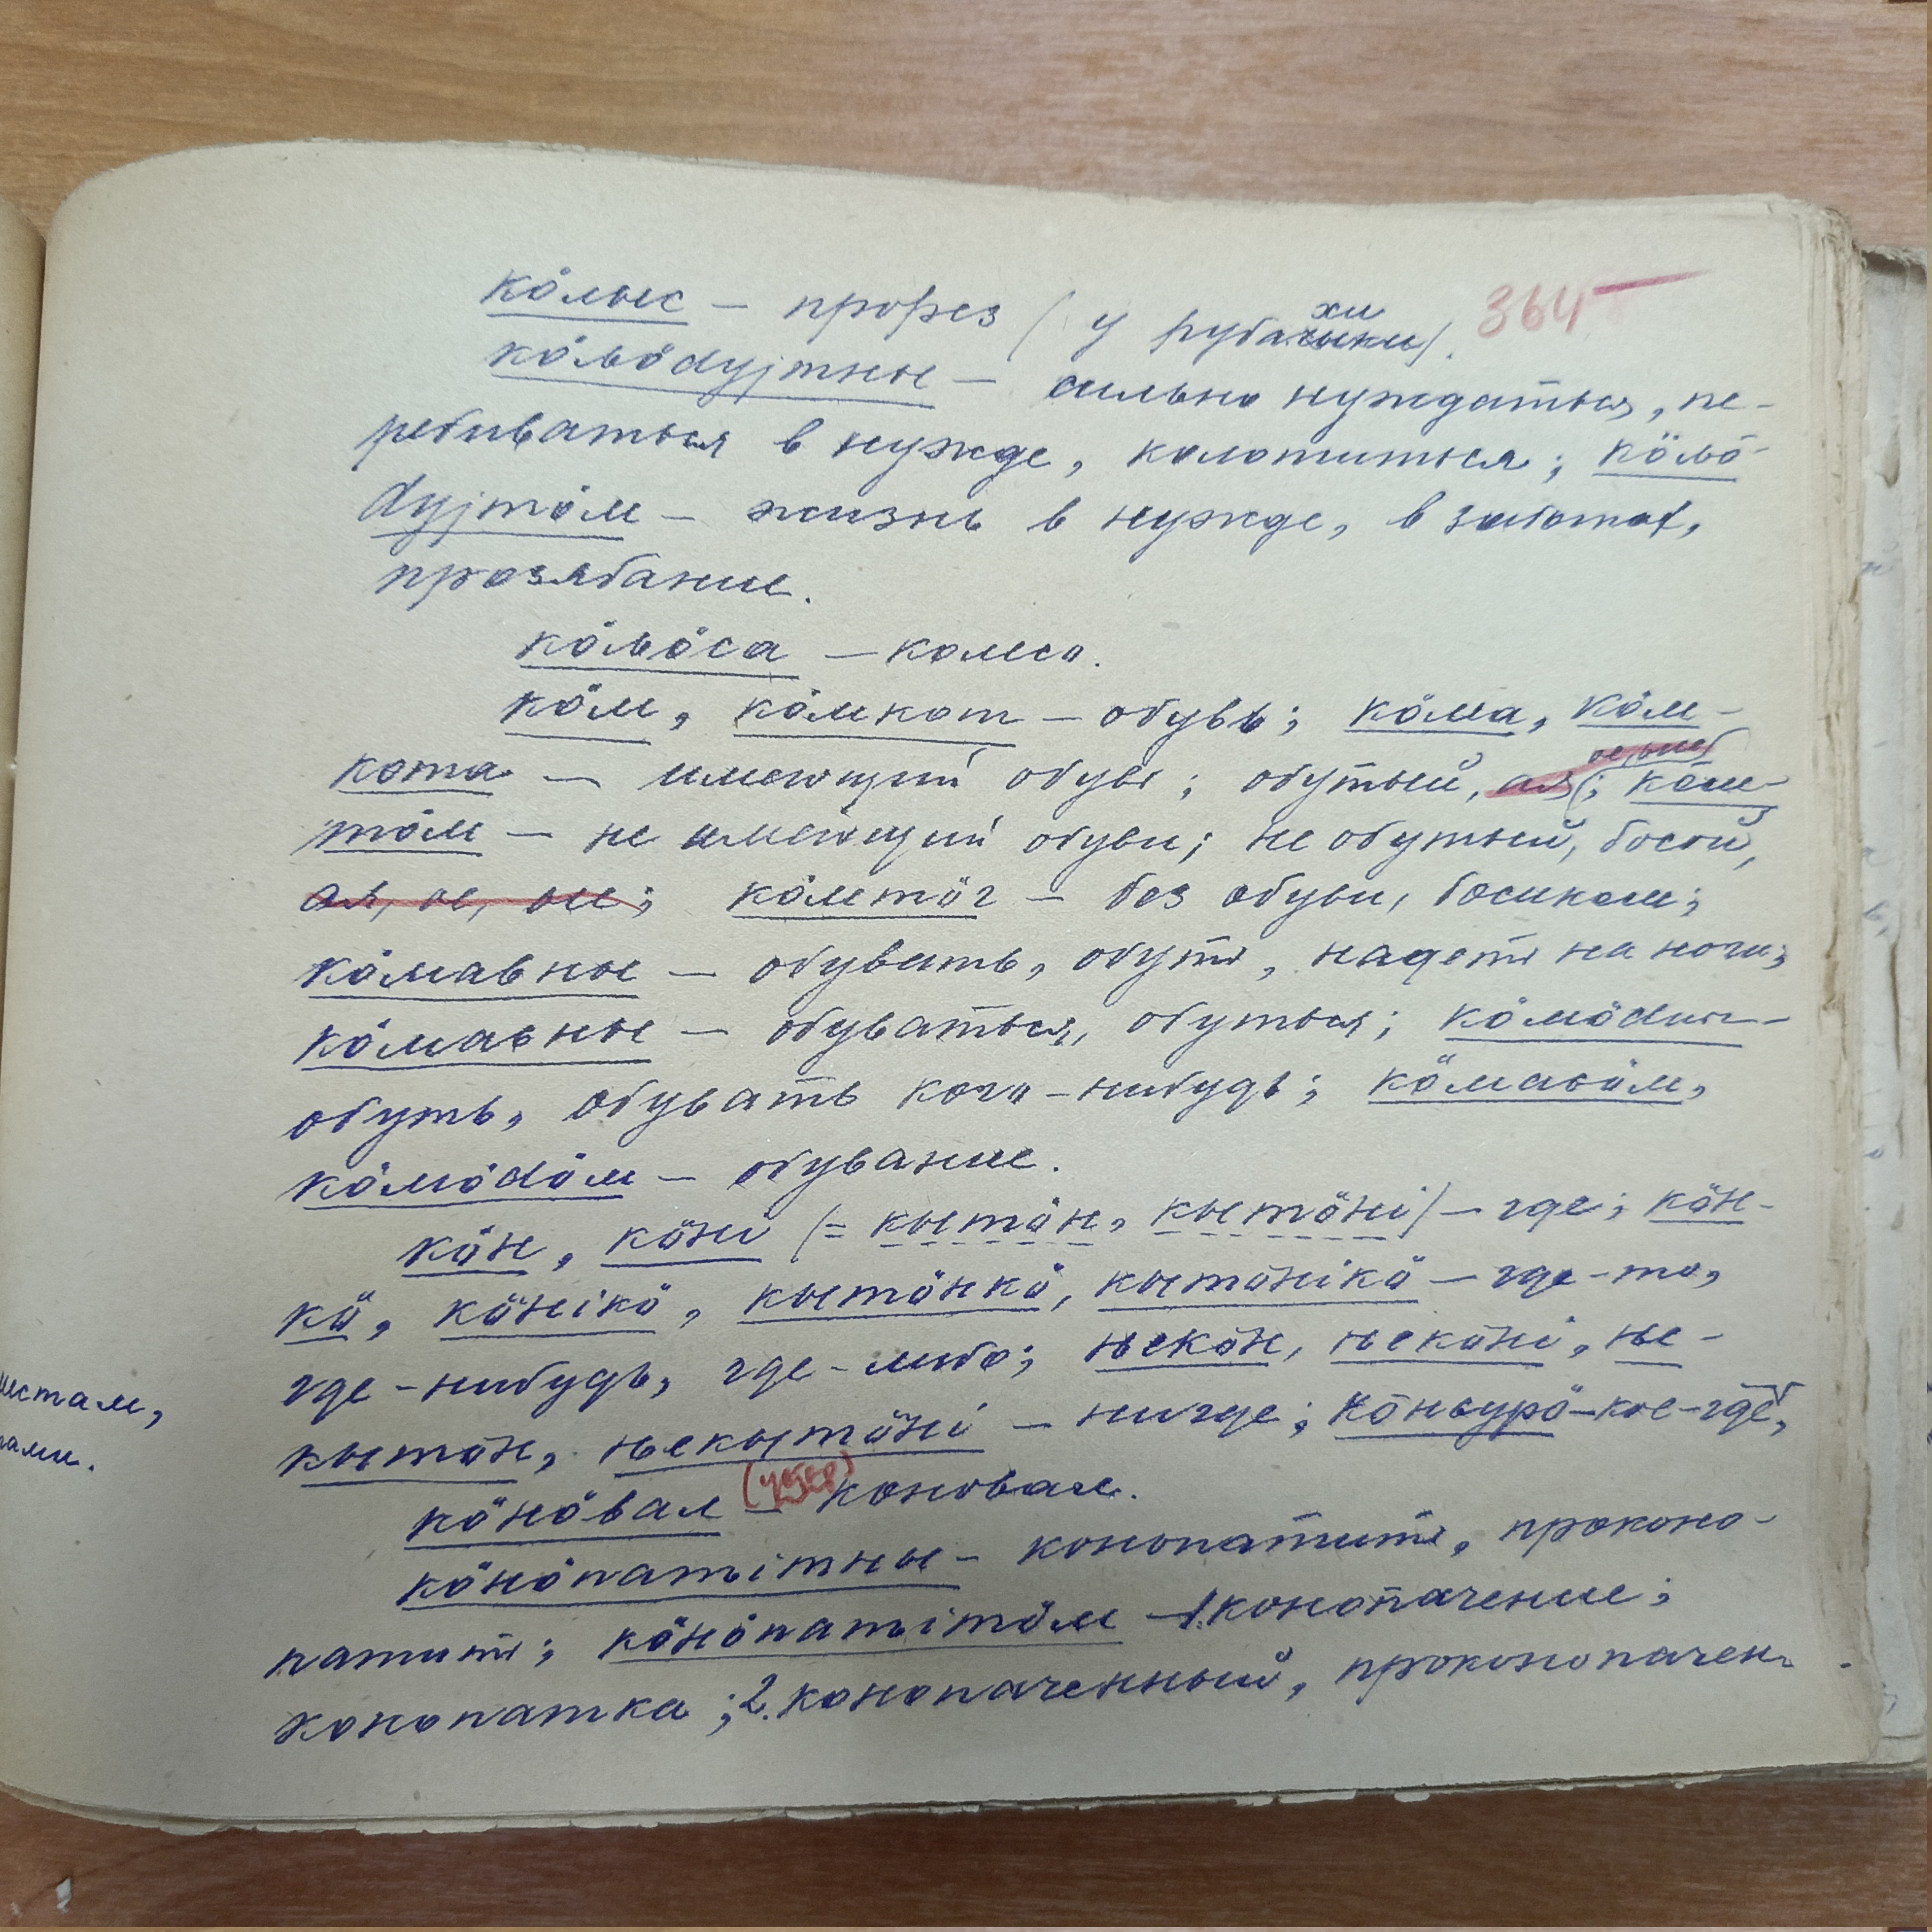 364
кӧлыс – прорез (у рубахи).
кӧԉӧdуjтны – сильно нуждаться, пе-
ребиваться в нужде, колотиться; кӧԉӧ-
dуjтӧм – жизнь в нужде, в заботах,
прозябание.
кӧԉӧса – колесо.
кӧм, кӧмкот – обувь; кӧма, кӧм-
кота – имеющий обувь; обутый, ая; кӧм-
тӧм – не имеющий обуви; не обутый, босой,
ая, ое, ые; кӧмтӧг – без обуви, босиком;
кӧмавны – обувать, обуть, надеть на ноги;
кӧмавны – обуваться, обуться; кӧмӧdны –
обуть, обувать кого-нибудь; кӧмасӧм,
кӧмӧdӧм – обувание.
кӧн, кӧнi (= кытӧн, кытӧнi) – где; кӧн-
кӧ, кӧнiкӧ, кытӧнкӧ, кытӧнiкӧ – где-то,
где-нибудь, где-либо; ԋекӧн, ԋекӧнi, ԋе-
кытӧн, ԋекытӧнi – нигде; кӧнсурӧ – кое-где,
кӧнӧвал – коновал.
кӧнӧпаԏiтны – конопатить, проконо-
патить; кӧнӧпаԏiтӧм – 1. конопачение;
конопатка; 2. конопаченный, проконопачен-
местам,